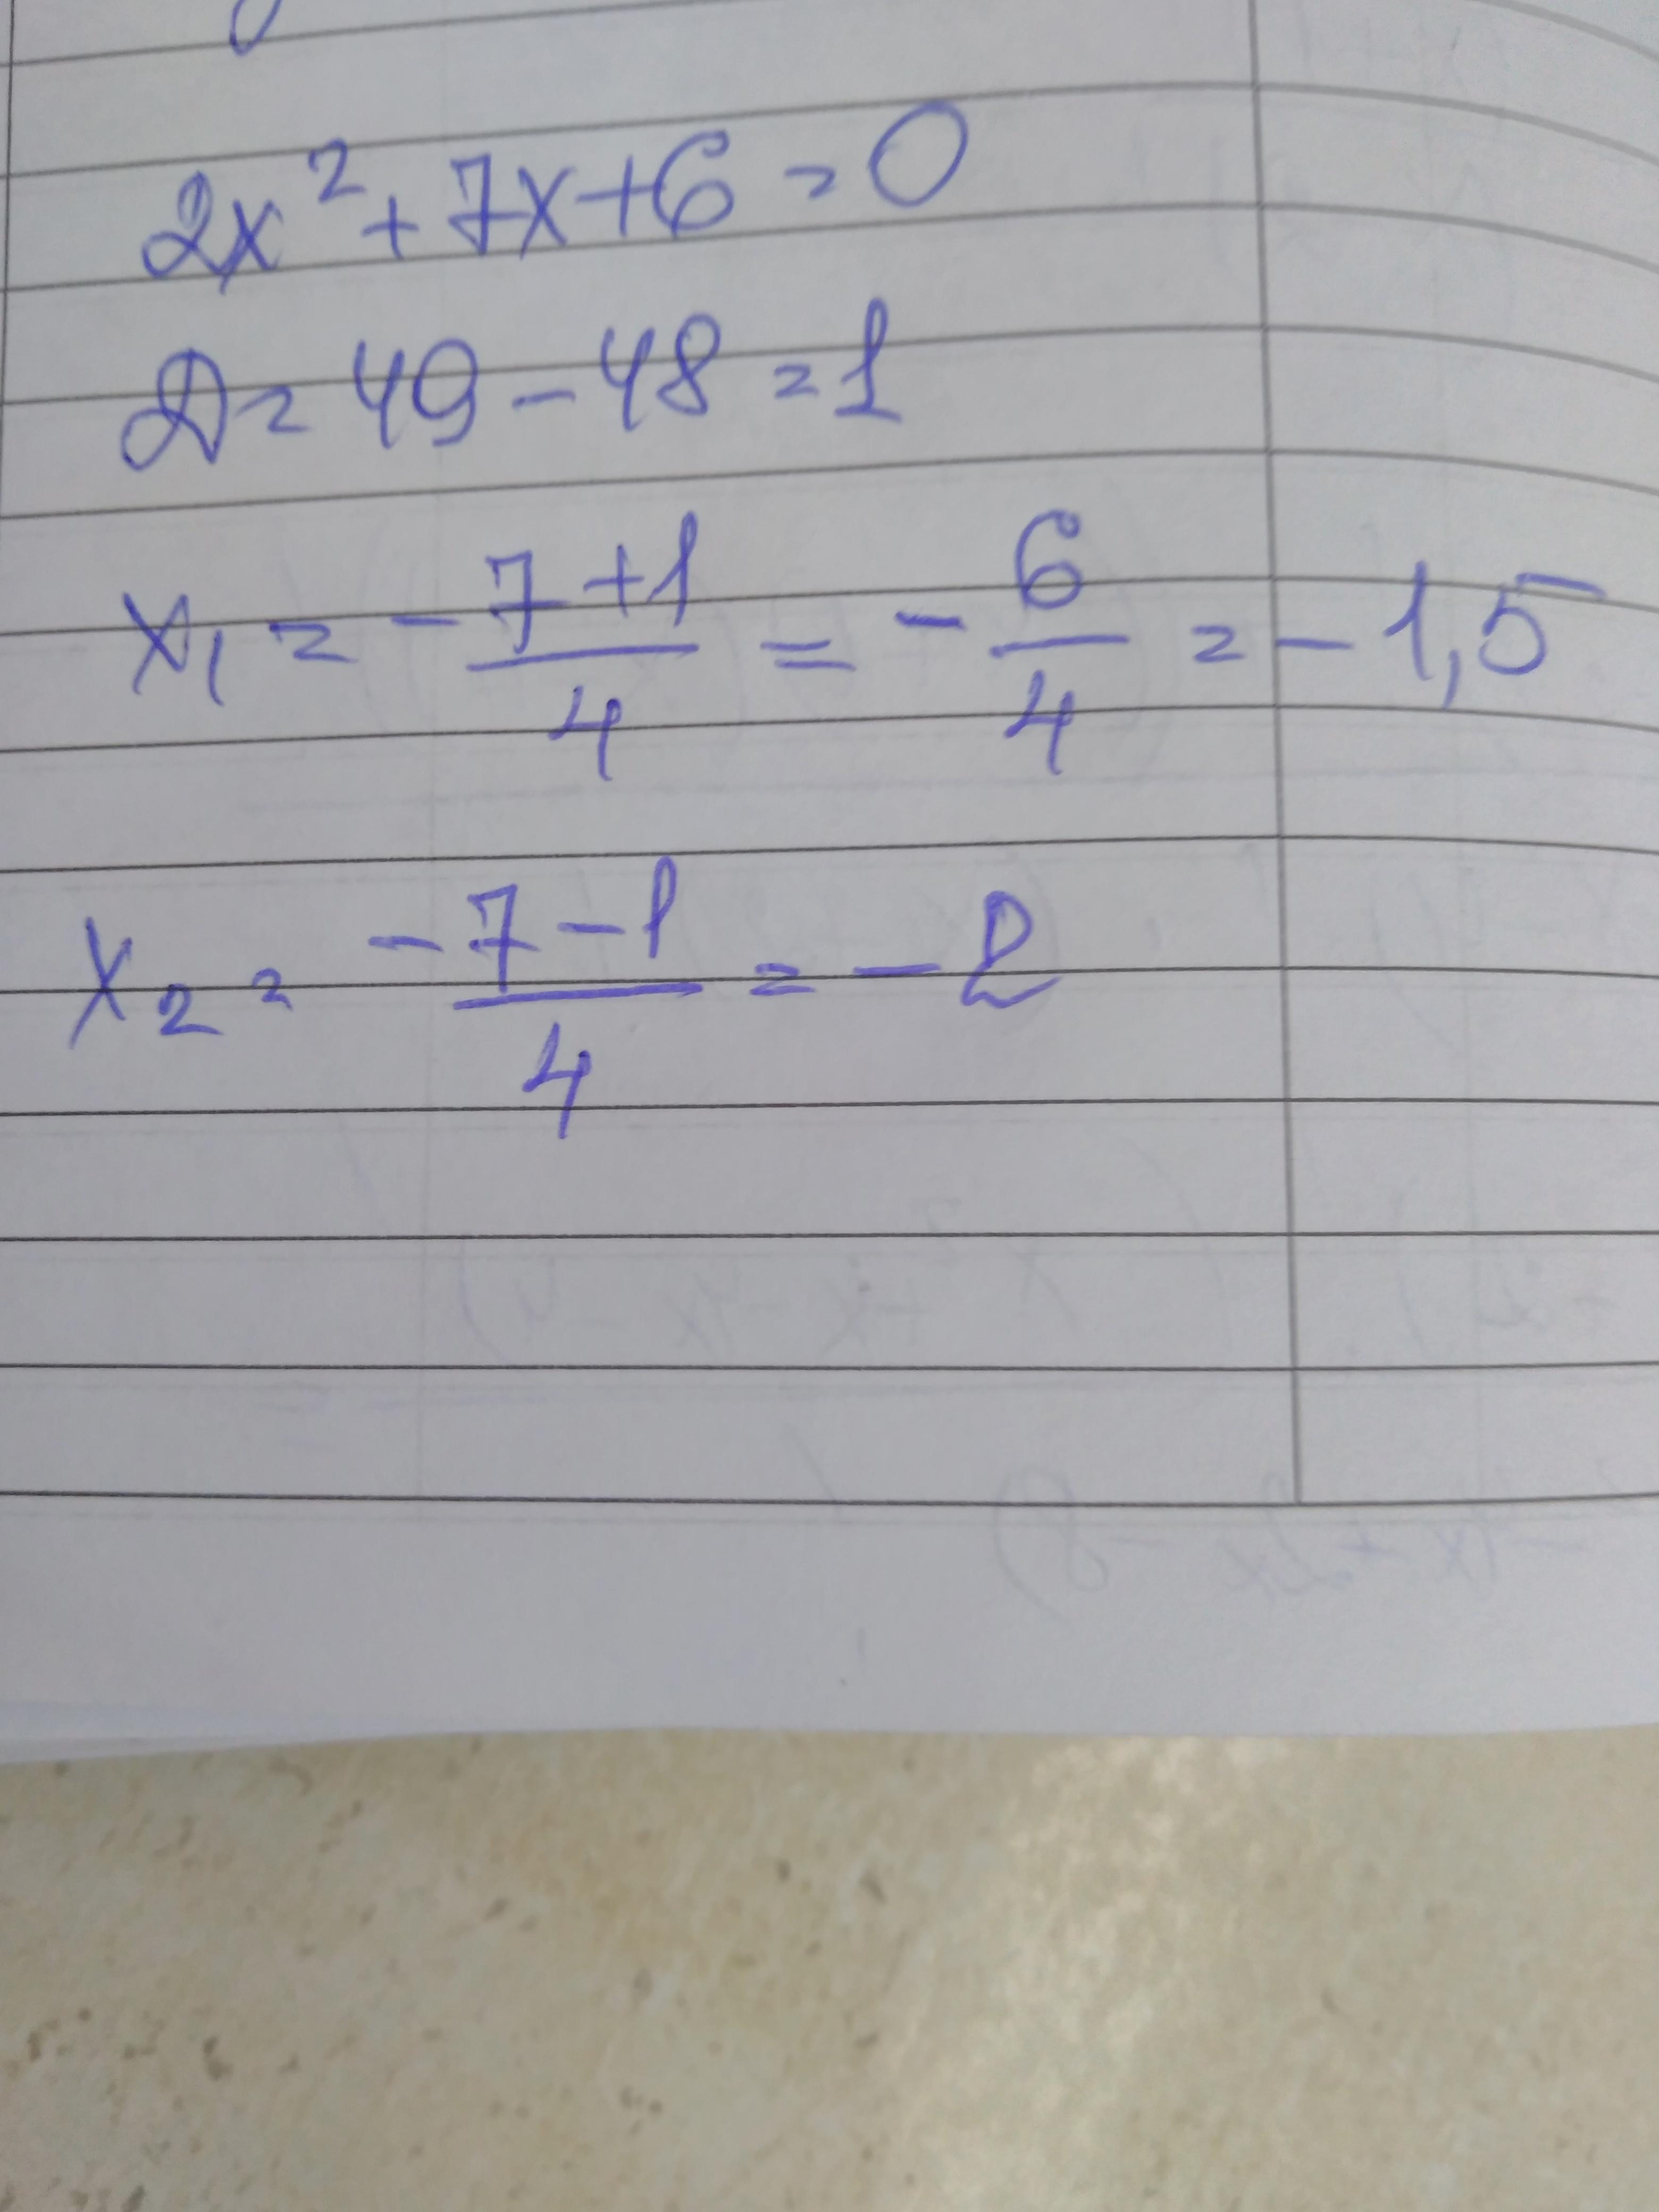 2x² + 7x + 6 = 0
D = 49 - 48 = 1
x₁ = - 7 + 1 / 4 = - 6 / 4 = - 1,5
x₂ = - 7 - 1 / 4 = - 2